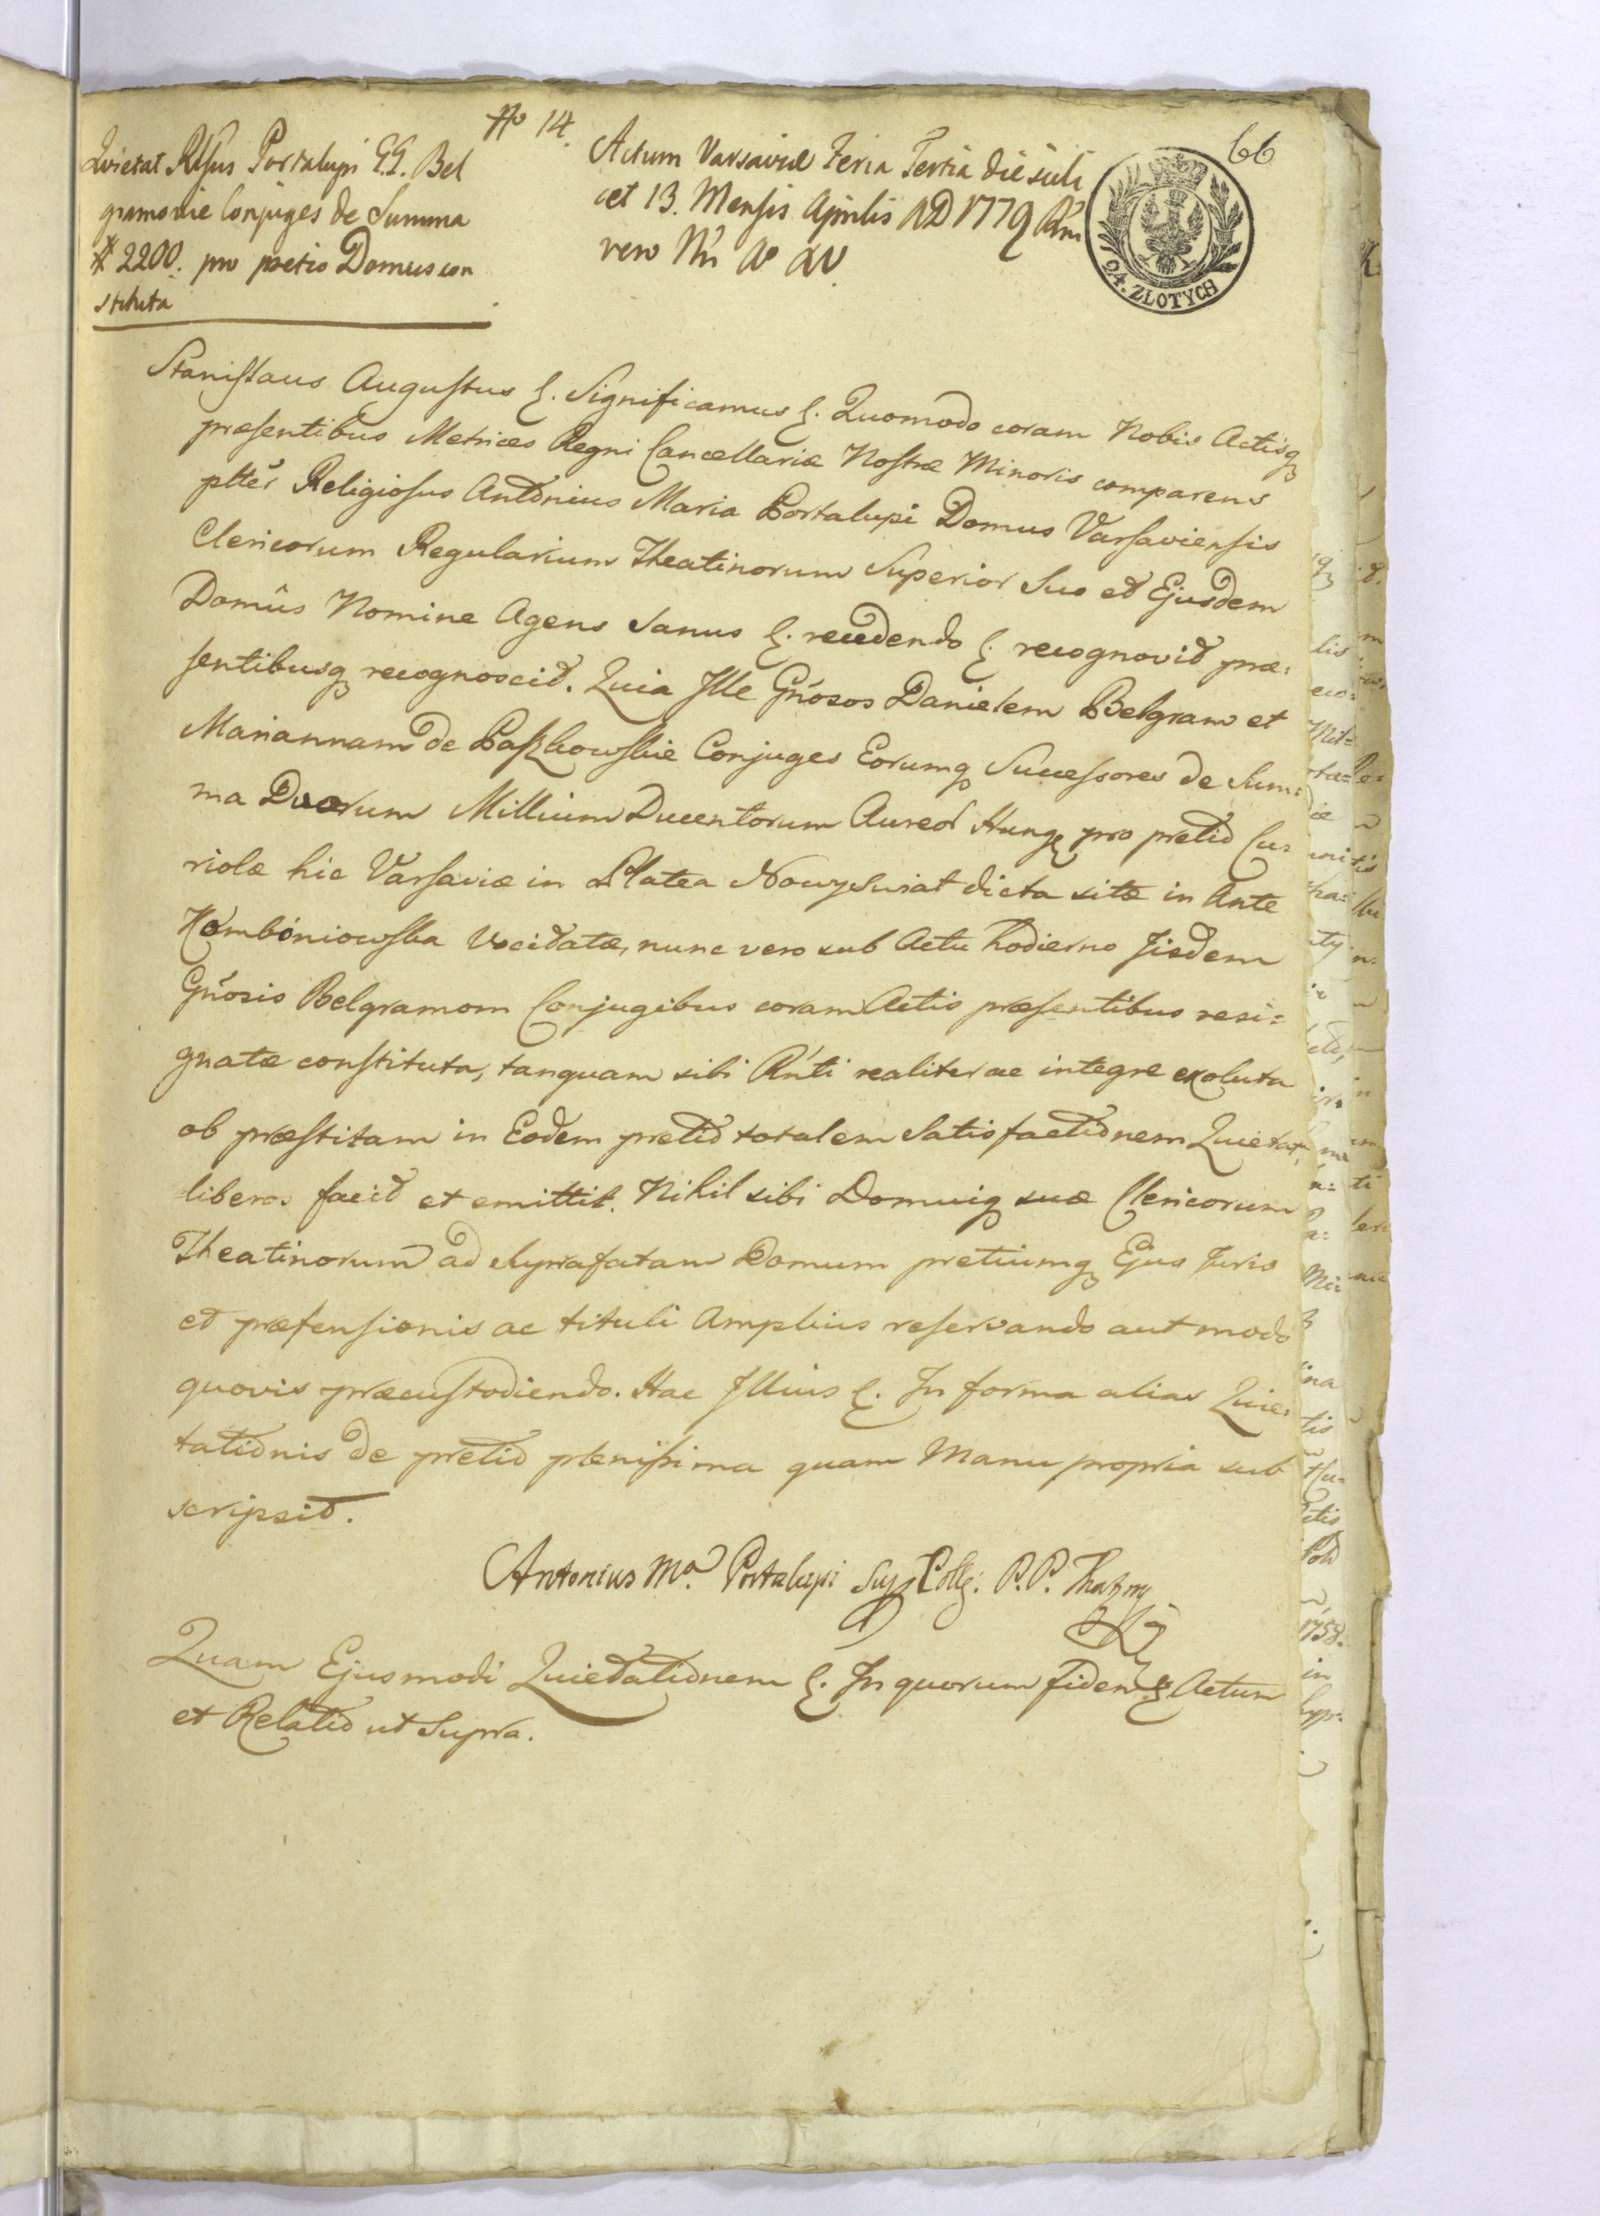 No 14.
66
Quietat Rssus Portalupi GG. Bel
gramowie Conjuges de Summa
# 2200. pro pretio Domus con
stituta
Actum Varsaviæ Feria Tertia die scili
cet 13. Mensis Aprilis AD 1779 Rñi
vero Nri Ao XV.
24. ZLOTYCH
Stanislaus Augustus &. Significamus &. Quomodo coram Nobis Actisq
præsentibus Metrices Regni Cancellariæ Nostræ Minoris comparens
pltēr Religiosus Antonius Maria Portalupi Domus Varsaviensis
Clericorum Regularium Theatinorum Superior Suo et Ejusdem
Domûs Nomine Agens Sanus &. recedendo &. recognovit præ:
sentibusq recognoscit. Quia Ille Gñosos Danielem Belgram et
Mariannam de Paszkowskie Conjuges Eorumq Successores de Sum:
ma Duorum Millium Ducentorum Aureor Hung pro pretio Cu:
riolæ hic Varsaviæ in Platea Nowyswiat dicta sitæ in Ante
Kamboniowska Vocitatæ, nunc vero sub Actu hodierno Iisdem
Gñosis Belgramom Conjugibus coram Actis præsentibus resi:
gnatæ constituta, tanquam sibi Rñti realiter ac integre exoluta
ob præstitam in Eodem pretio totalem Satisfactionem Quietat,
liberos facit et emittit. Nihil sibi Domuiq suæ Clericorum
Theatinorum ad suprafatam Domum pretiumq Ejus Juris
et prætensionis ac tituli Amplius reservando aut modo
quovis præcustodiendo. Hac Illius &. In forma alias Quie:
tationis de pretio plenissima quam Manu propria sub
scripsit.
Antonius Ma. Portalupi Sup Collg: P.P. Theatin
Quam Ejusmodi Quietationem &. In quorum fidem & Actum
et Relatio ut Supra.